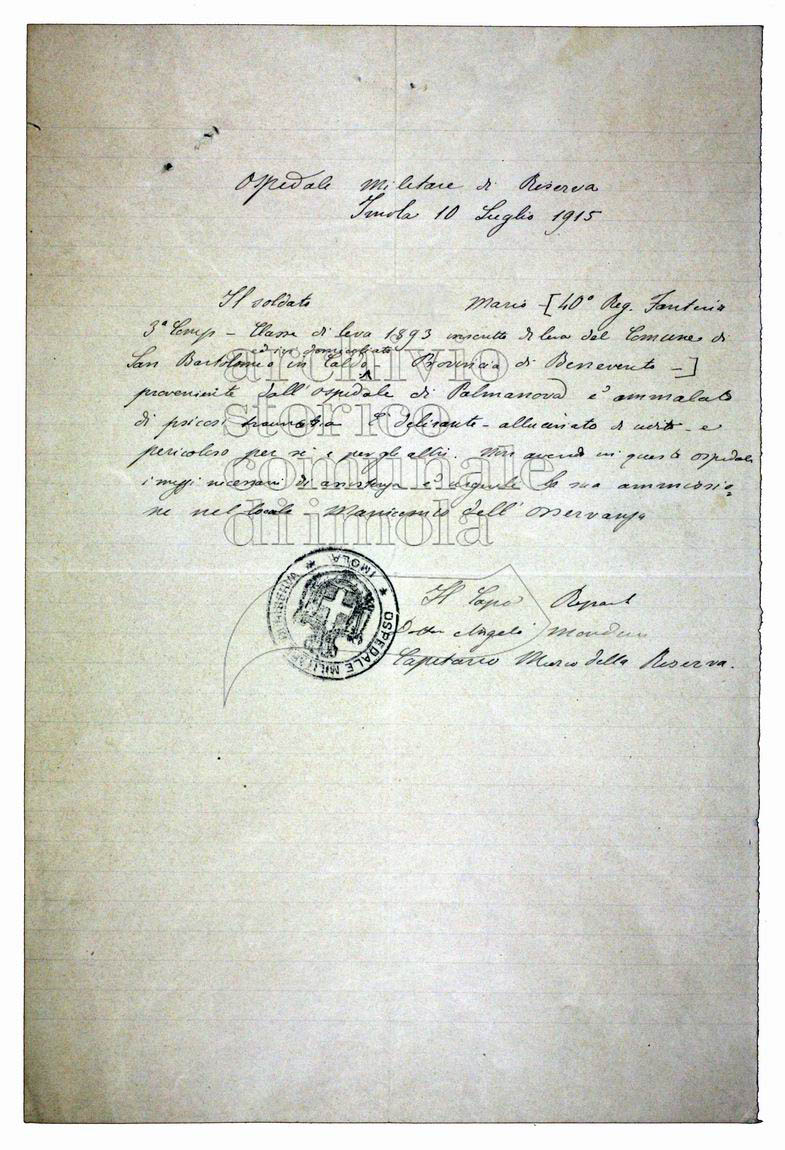 Ospedale Militare di Riserva
Imola 10 Luglio 1915
Il soldato Mario - [40° Reg. Fanteria
3ª Comp - Classe di leva 1893 inscritto di leva del Comune di
ed ivi domiciliato
San Bartolomeo in Galdo Provincia di Benevento - ]
proveniente dall'Ospedale di Palmanova è ammalato
di psicosi E' delirante - allucinato di udito - e
pericoloso per sè e per gli altri. Non avendo in questo ospedale
i mezzi necessari di assistenza è urgente la sua ammissio=
ne nel locale Manicomio dell'Osservanza
Il Capo Repart
Dottor Angelo
Capitano Medico della Riserva.
OSPEDALE MILITARE DI RISERVA * IMOLA *
archivio
storico
comunale
di imola